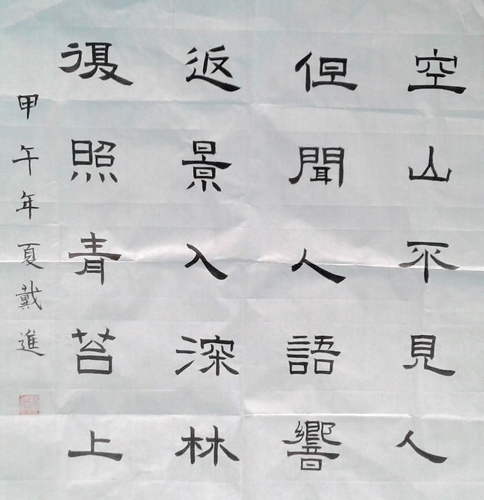 空山不見人
但聞人語響
返景入深林
復照青苔上
甲午年夏戴進